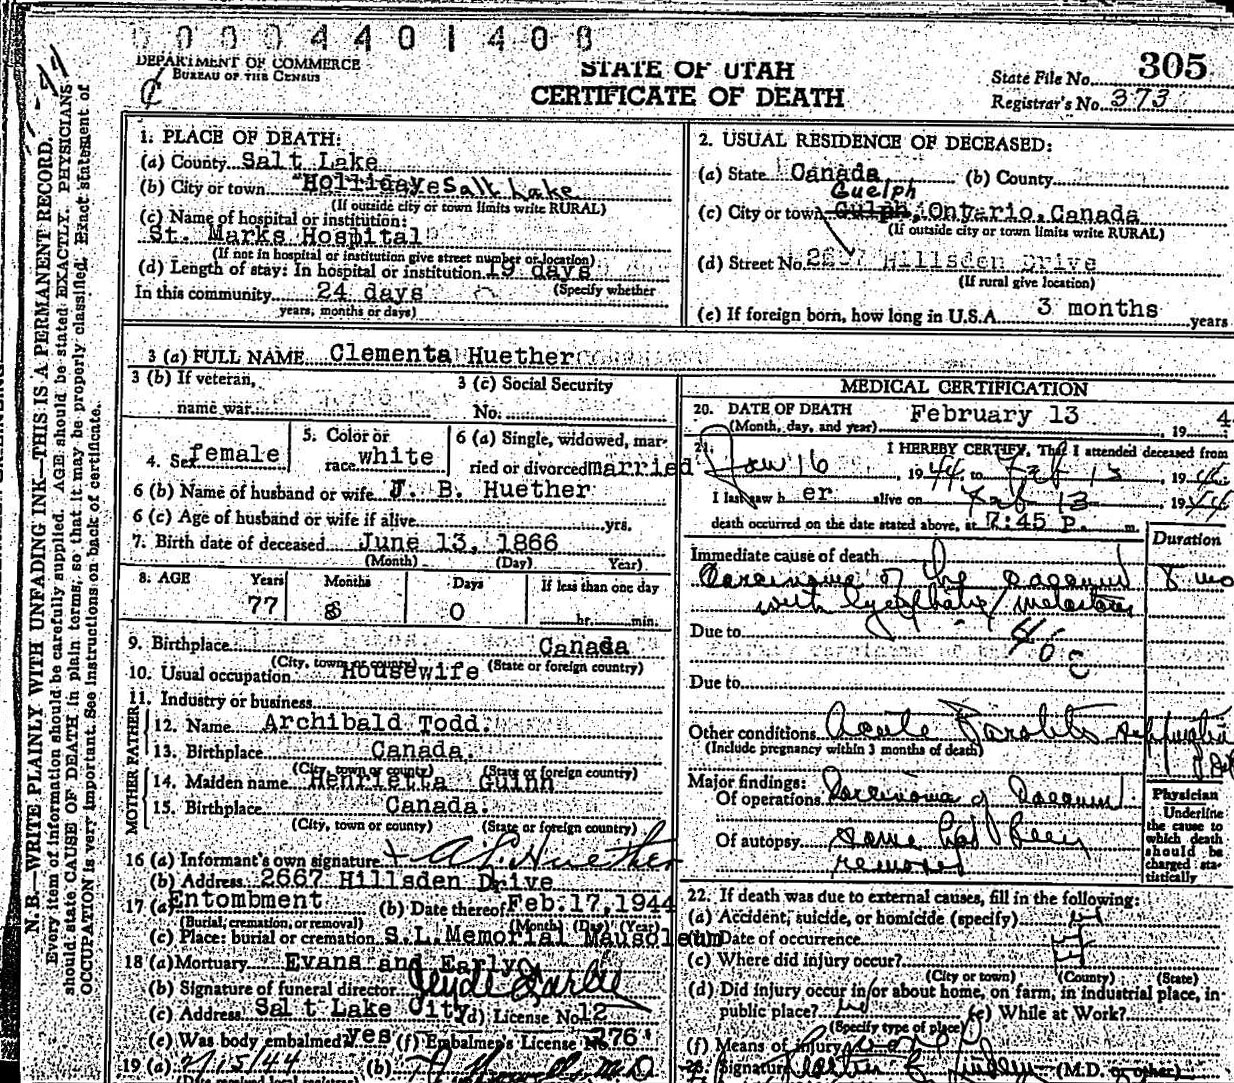 0004401408
DEPARTMENT OF COMMERCE
BUREAU OF THE CENSUS
STATE OF UTAH
CERTIFICATE OF DEATH
State File No. 305
Registrar's No. 373
N. B.—WRITE PLAINLY WITH UNFADING INK—THIS IS A PERMANENT RECORD.
Every item of information should be carefully supplied. AGE should be stated EXACTLY. PHYSICIANS
should state CAUSE OF DEATH in plain terms, so that it may be properly classified. Exact statement of
OCCUPATION is very important. See instructions on back of certificate.
1. PLACE OF DEATH:
(a) County Salt Lake
(b) City or town Salt Lake
(If outside city or town limits write RURAL)
(c) Name of hospital or institution:
St. Marks Hospital
(If not in hospital or institution give street number or location)
(d) Length of stay: In hospital or institution 19 days
(Specify whether
In this community 24 days
years, months or days)
2. USUAL RESIDENCE OF DECEASED:
(a) State Canada (b) County
Guelph
(c) City or town Gulph, Ontario, Canada
(If outside city or town limits write RURAL)
(d) Street No. Hillsden Drive
(If rural give location)
(e) If foreign born, how long in U.S.A. 3 months years
3 (a) FULL NAME Clementa Huether
3 (b) If veteran,
name war
3 (c) Social Security
No.
4. Sex female
5. Color or
race white
6 (a) Single, widowed, mar-
ried or divorced married
6 (b) Name of husband or wife J. B. Huether
6 (c) Age of husband or wife if alive yrs.
7. Birth date of deceased June 13, 1866
(Month) (Day) Year)
8. AGE Years Months Days If less than one day
77 8 0 hr. min.
9. Birthplace Canada
(City, town or county) (State or foreign country)
10. Usual occupation Housewife
11. Industry or business
FATHER
12. Name Archibald Todd.
13. Birthplace Canada.
(City, town or county) (State or foreign country)
MOTHER
14. Maiden name Henrietta Guinn
15. Birthplace Canada.
(City, town or county) (State or foreign country)
16 (a) Informant's own signature Huether
(b) Address 2667 Hillsden Drive
17 (a) Entombment (b) Date thereof Feb. 17, 1944
(Burial, cremation, or removal) (Month) (Day) (Year)
(c) Place: burial or cremation S.L. Memorial Mausoleum
18 (a) Mortuary Evans and Early
(b) Signature of funeral director
(c) Address Salt Lake City (d) License No. 12
(e) Was body embalmed? yes (f) Embalmer's License No. 276
19 (a) 2/15/44 (b) M.D.
(Date received local registrar)
MEDICAL CERTIFICATION
20. DATE OF DEATH February 13 , 19 4
(Month, day, and year)
21. I HEREBY CERTIFY, That I attended deceased from
Jan 16 , 19 44, to Feb 13 , 19 44
I last saw h er alive on Feb 13 19 44
death occurred on the date stated above, at 7:45 P. m.
Duration
Immediate cause of death
Carcinoma of the caecum 8 mo
with lymphatic metastases
Due to 46
c
Due to
Other conditions Acute Parotitis
(Include pregnancy within 3 months of death)
Major findings:
Of operations Carcinoma of Caecum
Of autopsy same had been
removed
Physician
Underline
the cause to
which death
should be
charged sta-
tistically
22. If death was due to external causes, fill in the following:
(a) Accident, suicide, or homicide (specify)
(b) Date of occurrence
(c) Where did injury occur?
(City or town) (County) (State)
(d) Did injury occur in or about home, on farm, in industrial place, in
public place? (e) While at Work?
(Specify type of place)
(f) Means of injury
23. Signature (M.D. or other)